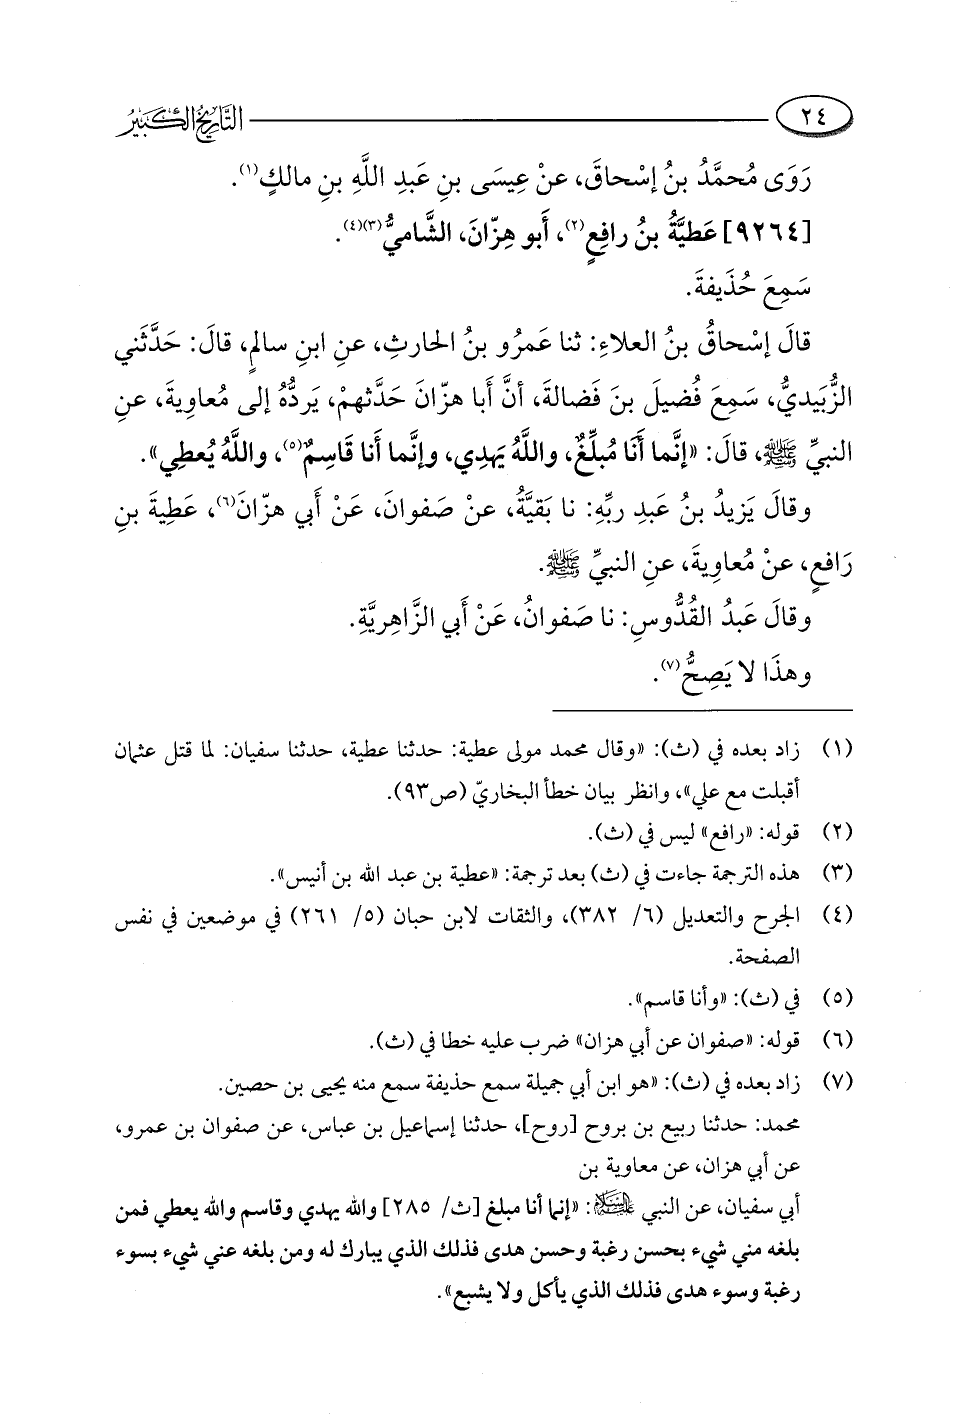 ٢٤ التاريخ الكبير
رَوَى مُحمَّدُ بنُ إسْحاقَ، عنْ عِيسَى بنِ عَبدِ اللَّهِ بنِ مالكٍ(١).
[٩٢٦٤] عَطيَّةُ بنُ رافِعٍ(٢)، أَبو هِزّانَ، الشَّاميُّ(٣)(٤).
سَمِعَ حُذَيفةَ.
قالَ إسْحاقُ بنُ العلاءِ: ثنا عَمرُو بنُ الحارثِ، عنِ ابنِ سالمٍ، قالَ: حَدَّثَني
الزُّبَيديُّ، سَمِعَ فُضيلَ بنَ فَضالةَ، أنَّ أَبا هزّانَ حَدَّثهمْ، يَردُّهُ إلى مُعاويةَ، عنِ
النبيِّ ﷺ، قالَ: «إنَّما أَنَا مُبلِّغٌ، واللَّهُ يَهدِي، وإنَّما أَنا قَاسِمٌ(٥)، واللَّهُ يُعطِي».
وقالَ يَزيدُ بنُ عَبدِ ربِّهِ: نا بَقيَّةُ، عنْ صَفوانَ، عَنْ أَبي هزّانَ(٦)، عَطِيةَ بنِ
رَافعٍ، عنْ مُعاويةَ، عنِ النبيِّ ﷺ.
وقالَ عَبدُ القُدُّوسِ: نا صَفوانُ، عَنْ أَبي الزَّاهِريَّةِ.
وهذَا لا يَصِحُّ(٧).
(١) زاد بعده في (ث): «وقال محمد مولى عطية: حدثنا عطية، حدثنا سفيان: لما قتل عثمان
أقبلت مع علي»، وانظر بيان خطأ البخاريّ (ص٩٣).
(٢) قوله: «رافع» ليس في (ث).
(٣) هذه الترجمة جاءت في (ث) بعد ترجمة: «عطية بن عبد الله بن أنيس».
(٤) الجرح والتعديل (٦/ ٣٨٢)، والثقات لابن حبان (٥/ ٢٦١) في موضعين في نفس
الصفحة.
(٥) في (ث): «وأنا قاسم».
(٦) قوله: «صفوان عن أبي هزان» ضرب عليه خطا في (ث).
(٧) زاد بعده في (ث): «هو ابن أبي جميلة سمع حذيفة سمع منه يحيى بن حصين.
محمد: حدثنا ربيع بن بروح [روح]، حدثنا إسماعيل بن عباس، عن صفوان بن عمرو،
عن أبي هزان، عن معاوية بن
أبي سفيان، عن النبي عليه السلام: «إنما أنا مبلغ [ث/ ٢٨٥] والله يهدي وقاسم والله يعطي فمن
بلغه مني شيء بحسن رغبة وحسن هدى فذلك الذي يبارك له ومن بلغه عني شيء بسوء
رغبة وسوء هدى فذلك الذي يأكل ولا يشبع».